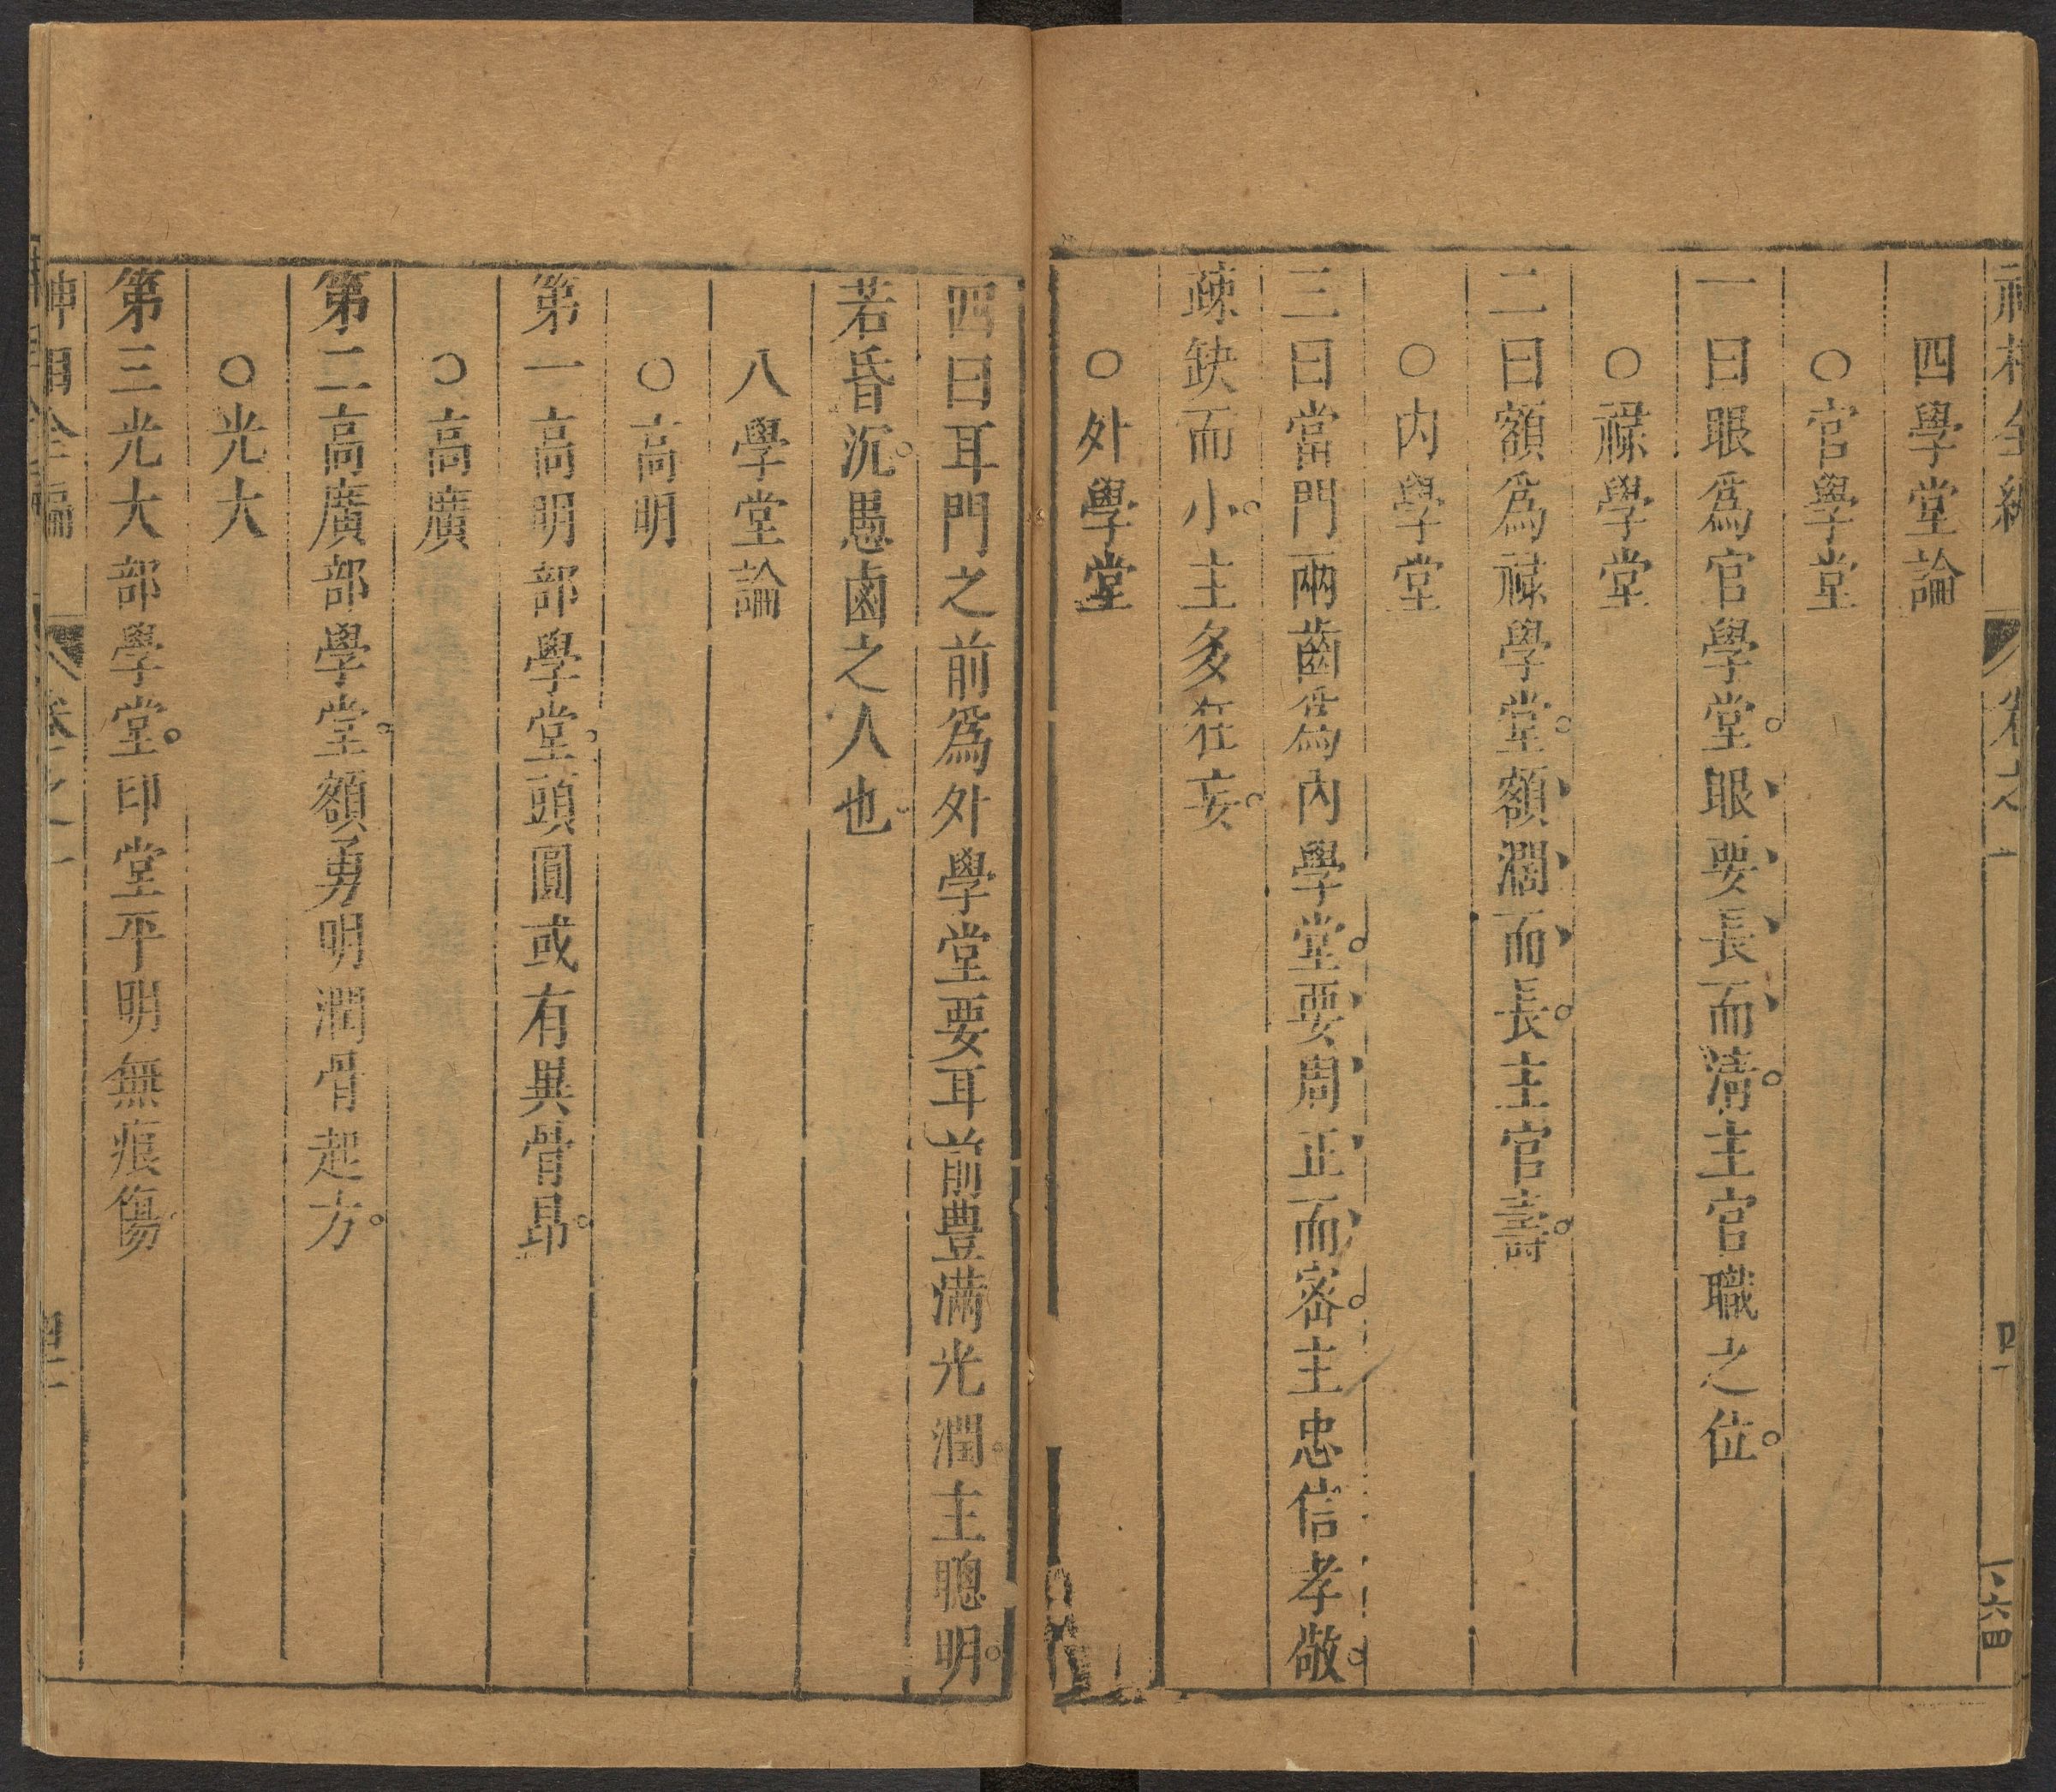 四學堂論
○官學堂
一曰眼爲官學堂。眼要長而清。主官職之位。
○祿學堂
二曰額爲祿學堂。額濶而長。主官壽。
○內學堂
三曰當門兩齒爲內學堂。要周正而密。主忠信孝敬。
疎缺而小。主多狂妄。
○外學堂
四曰耳門之前爲外學堂要耳前豊滿光潤。主聰明。
若昏沉。愚鹵之人也。
八學堂論
○高明
第一高明部學堂。頭圓或有異骨昂。
○高廣
第二高廣部學堂。額勇明潤骨起方。
○光大
第三光大部學堂。印堂平明無痕傷
神相全編 卷之一 四二